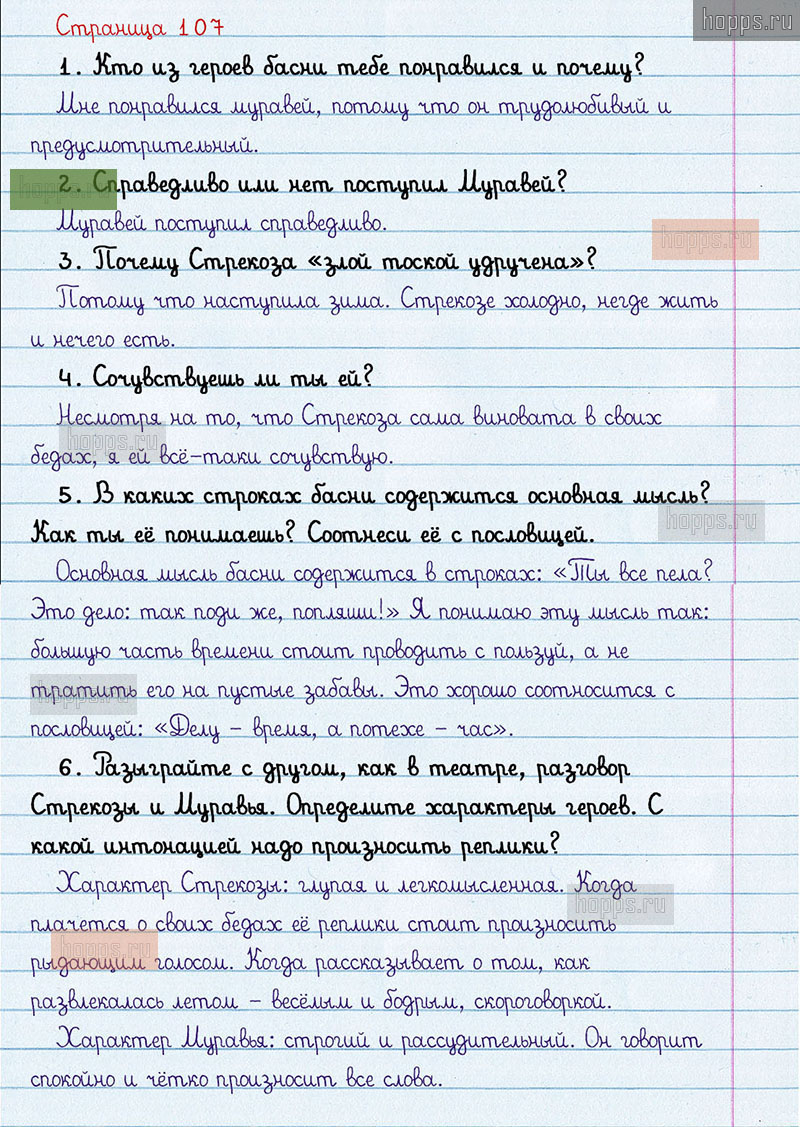 Страница 107
hopps.ru
1. Кто из героев басни тебе понравился и почему?
Мне понравился муравей, потому что он трудолюбивый и
предусмотрительный.
2. Справедливо или нет поступил Муравей?
hopps.ru
Муравей поступил справедливо.
hopps.ru
3. Почему Стрекоза «злой тоской удручена»?
Потому что наступила зима. Стрекозе холодно, негде жить
и нечего есть.
4. Сочувствуешь ли ты ей?
Несмотря на то, что Стрекоза сама виновата в своих
hopps.ru
бедах, я ей всё-таки сочувствую.
5. В каких строках басни содержится основная мысль?
hopps.ru
Как ты её понимаешь? Соотнеси её с пословицей.
Основная мысль басни содержится в строках: «Ты все пела?
Это дело: так поди же, попляши!» Я понимаю эту мысль так:
большую часть времени стоит проводить с пользуй, а не
тратить его на пустые забавы. Это хорошо соотносится с
hopps.ru
пословицей: «Делу – время, а потехе – час».
6. Разыграйте с другом, как в театре, разговор
Стрекозы и Муравья. Определите характеры героев. С
какой интонацией надо произносить реплики?
Характер Стрекозы: глупая и легкомысленная. Когда
hopps.ru
плачется о своих бедах её реплики стоит произносить
hopps.ru
рыдающим голосом. Когда рассказывает о том, как
развлекалась летом – весёлым и бодрым, скороговоркой.
Характер Муравья: строгий и рассудительный. Он говорит
спокойно и чётко произносит все слова.